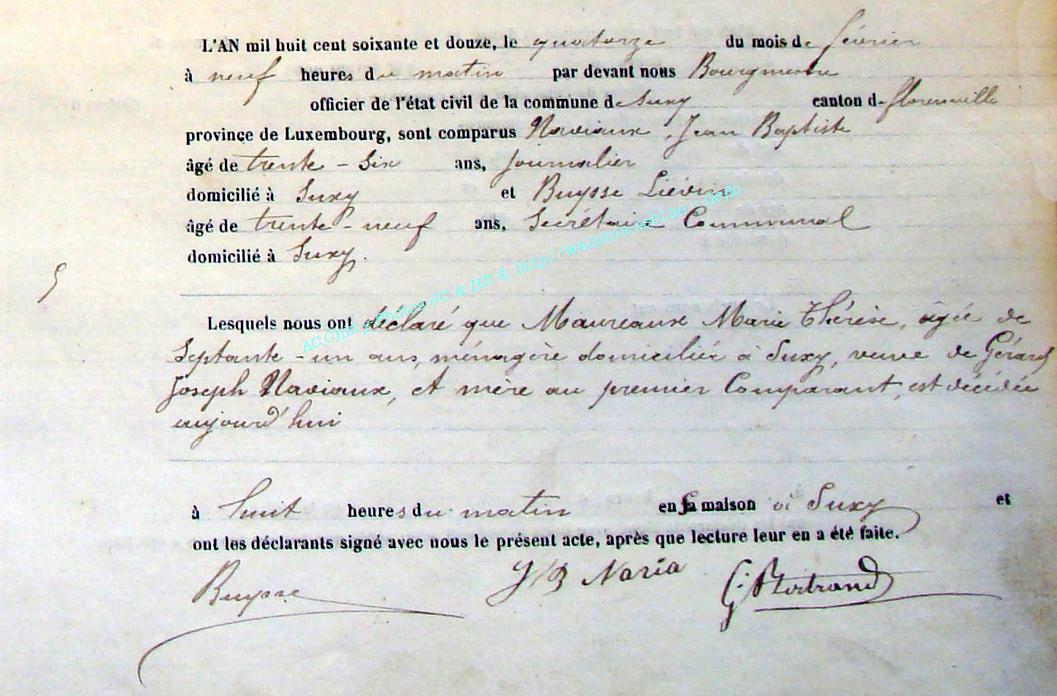 L'AN mil huit cent soixante et douze, le quatorze du mois de février
à neuf heures du matin par devant nous Bourgmestre
officier de l'état civil de la commune de Suxy canton de florenville
province de Luxembourg, sont comparus Naviaux, Jean Baptiste
âgé de trente-six ans, Journalier
domicilié à Suxy et Buysse Liévin
âgé de trente-neuf ans, Secrétaire Communal
domicilié à Suxy.
5
Lesquels nous ont déclaré que Maureaux Marie Thérèse, âgée de
Septante-un ans, ménagère domiciliée à Suxy, veuve de Gérard
Joseph Naviaux, et mère au premier Comparant, est décédée
aujourd'hui
à huit heures du matin en sa maison à Suxy et
ont les déclarants signé avec nous le présent acte, après que lecture leur en a été faite.
Buysse J B Naria G. Bertrand